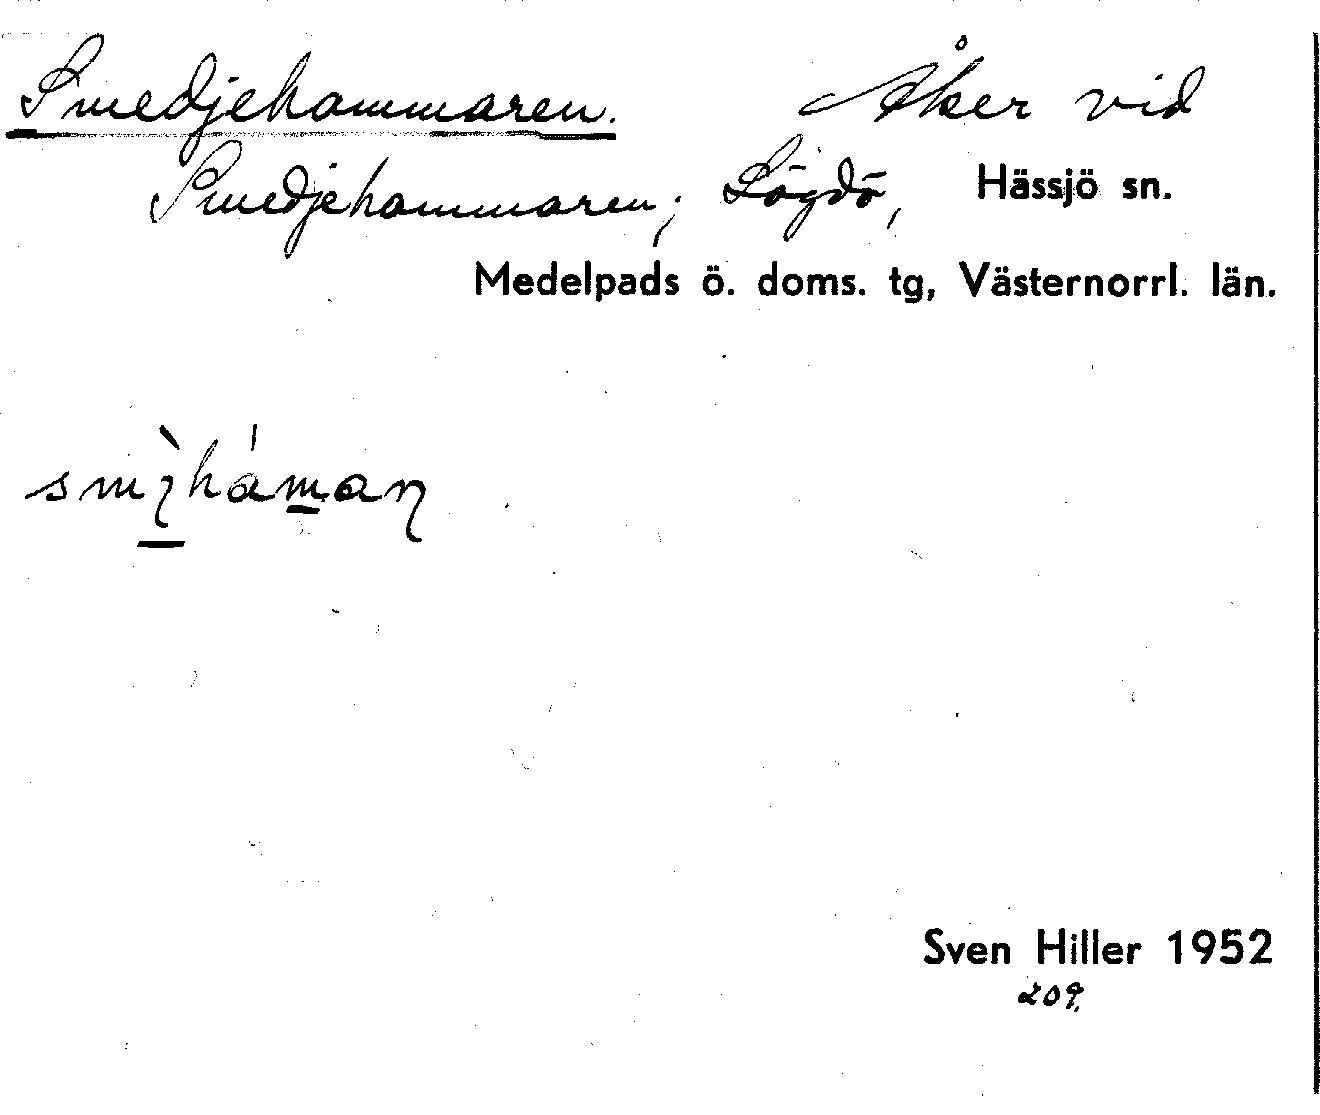 Smedjehammaren. Åker vid
Smedjehammaren; Lögdö, Hässjö sn.
Medelpads ö. doms. tg, Västernorrl. län.
Sven Hiller 1952
209.